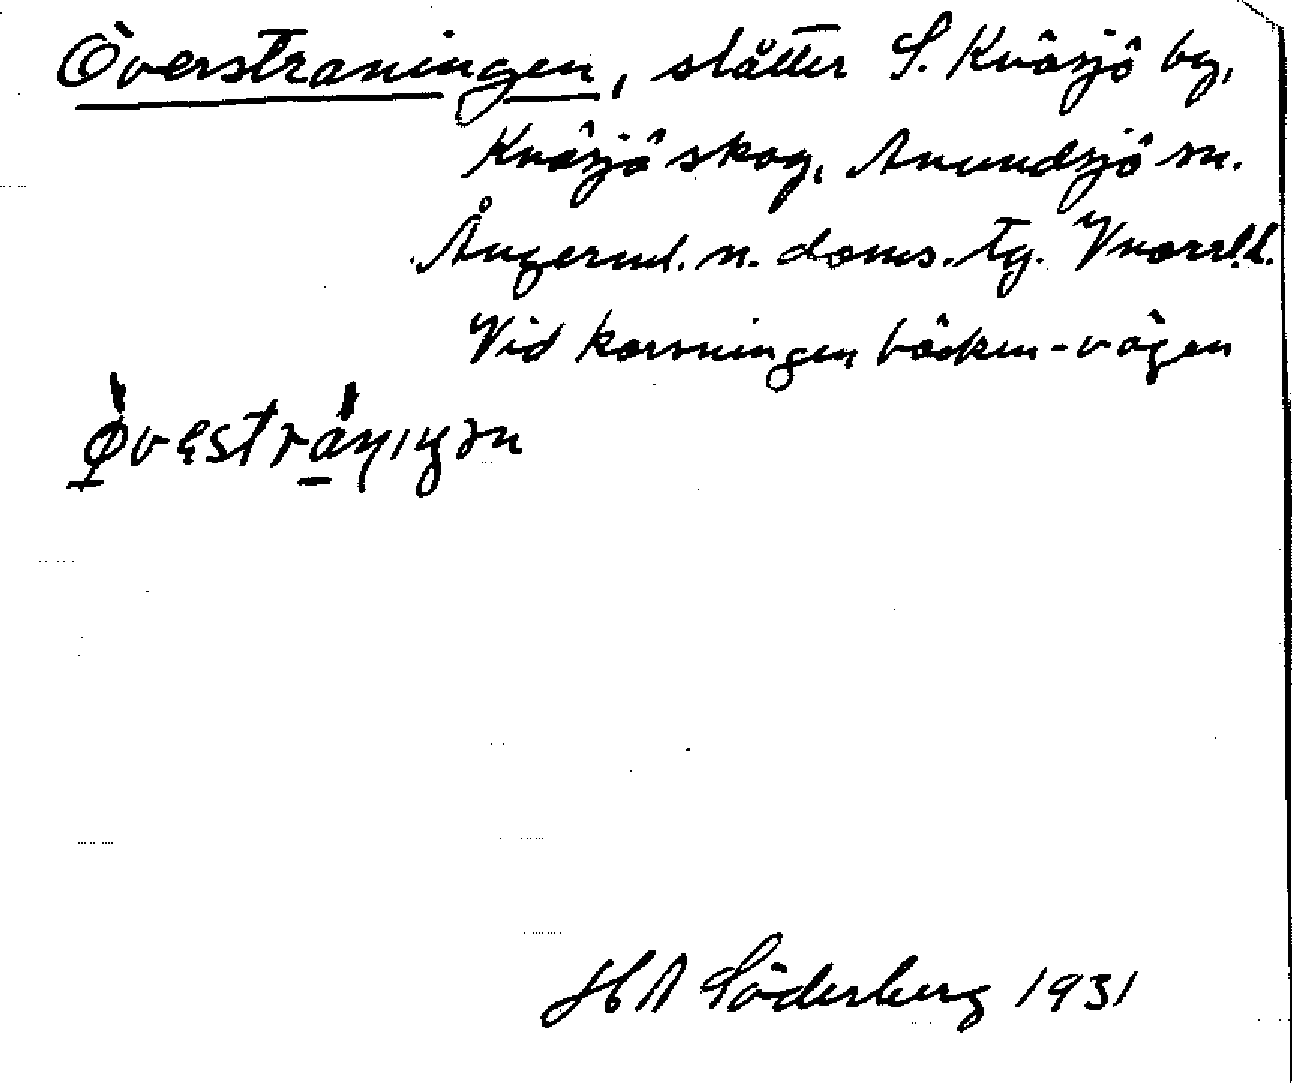 Överstraningen, slåtter S. Kväsjö by,
Kväsjö skog, Anundsjö sn.
Ångerml. n. doms. tg. Vnorrl.l.
Vid korsningen bäcken-vägen
HA Söderberg 1931